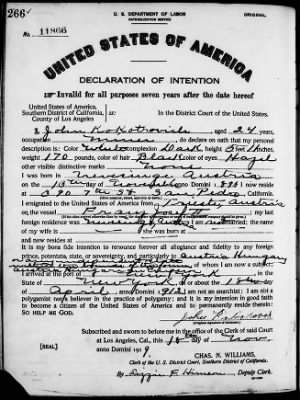 266
U. S. DEPARTMENT OF LABOR
NATURALIZATION SERVICE
ORIGINAL
No. 11866
UNITED STATES OF AMERICA
DECLARATION OF INTENTION
Invalid for all purposes seven years after the date hereof
United States of America,
Southern District of California,
County of Los Angeles
ss:
In the District Court of the United States.
I, John aged 24 years,
occupation do declare on oath that my personal
description is: Color White complexion Dark height 5 feet inches,
weight 170 pounds, color of hair Black color of eyes Hazel
other visible distinctive marks
I was born in Austria
on the 10 day of anno Domini I now reside at
San Pedro, California.
I emigrated to the United States of America from Trieste, Austria
on the vessel my last
foreign residence was married; the name
of my wife is she was born at
and now resides at
It is my bona fide intention to renounce forever all allegiance and fidelity to any foreign
prince, potentate, state, or sovereignty, and particularly to Austria Hungary
of whom I am now a subject;
I arrived at the port of New York in the
State of New York on or about the day
of April anno Domini 1912; I am not an anarchist; I am not a
polygamist nor a believer in the practice of polygamy; and it is my intention in good faith
to become a citizen of the United States of America and to permanently reside therein:
SO HELP ME GOD.
John
Subscribed and sworn to before me in the office of the Clerk of said Court
at Los Angeles, Cal., this 18 day of Nov
anno Domini 1919.
[SEAL]
CHAS. N. WILLIAMS,
Clerk of the U. S. District Court, Southern District of California.
By Deputy Clerk.